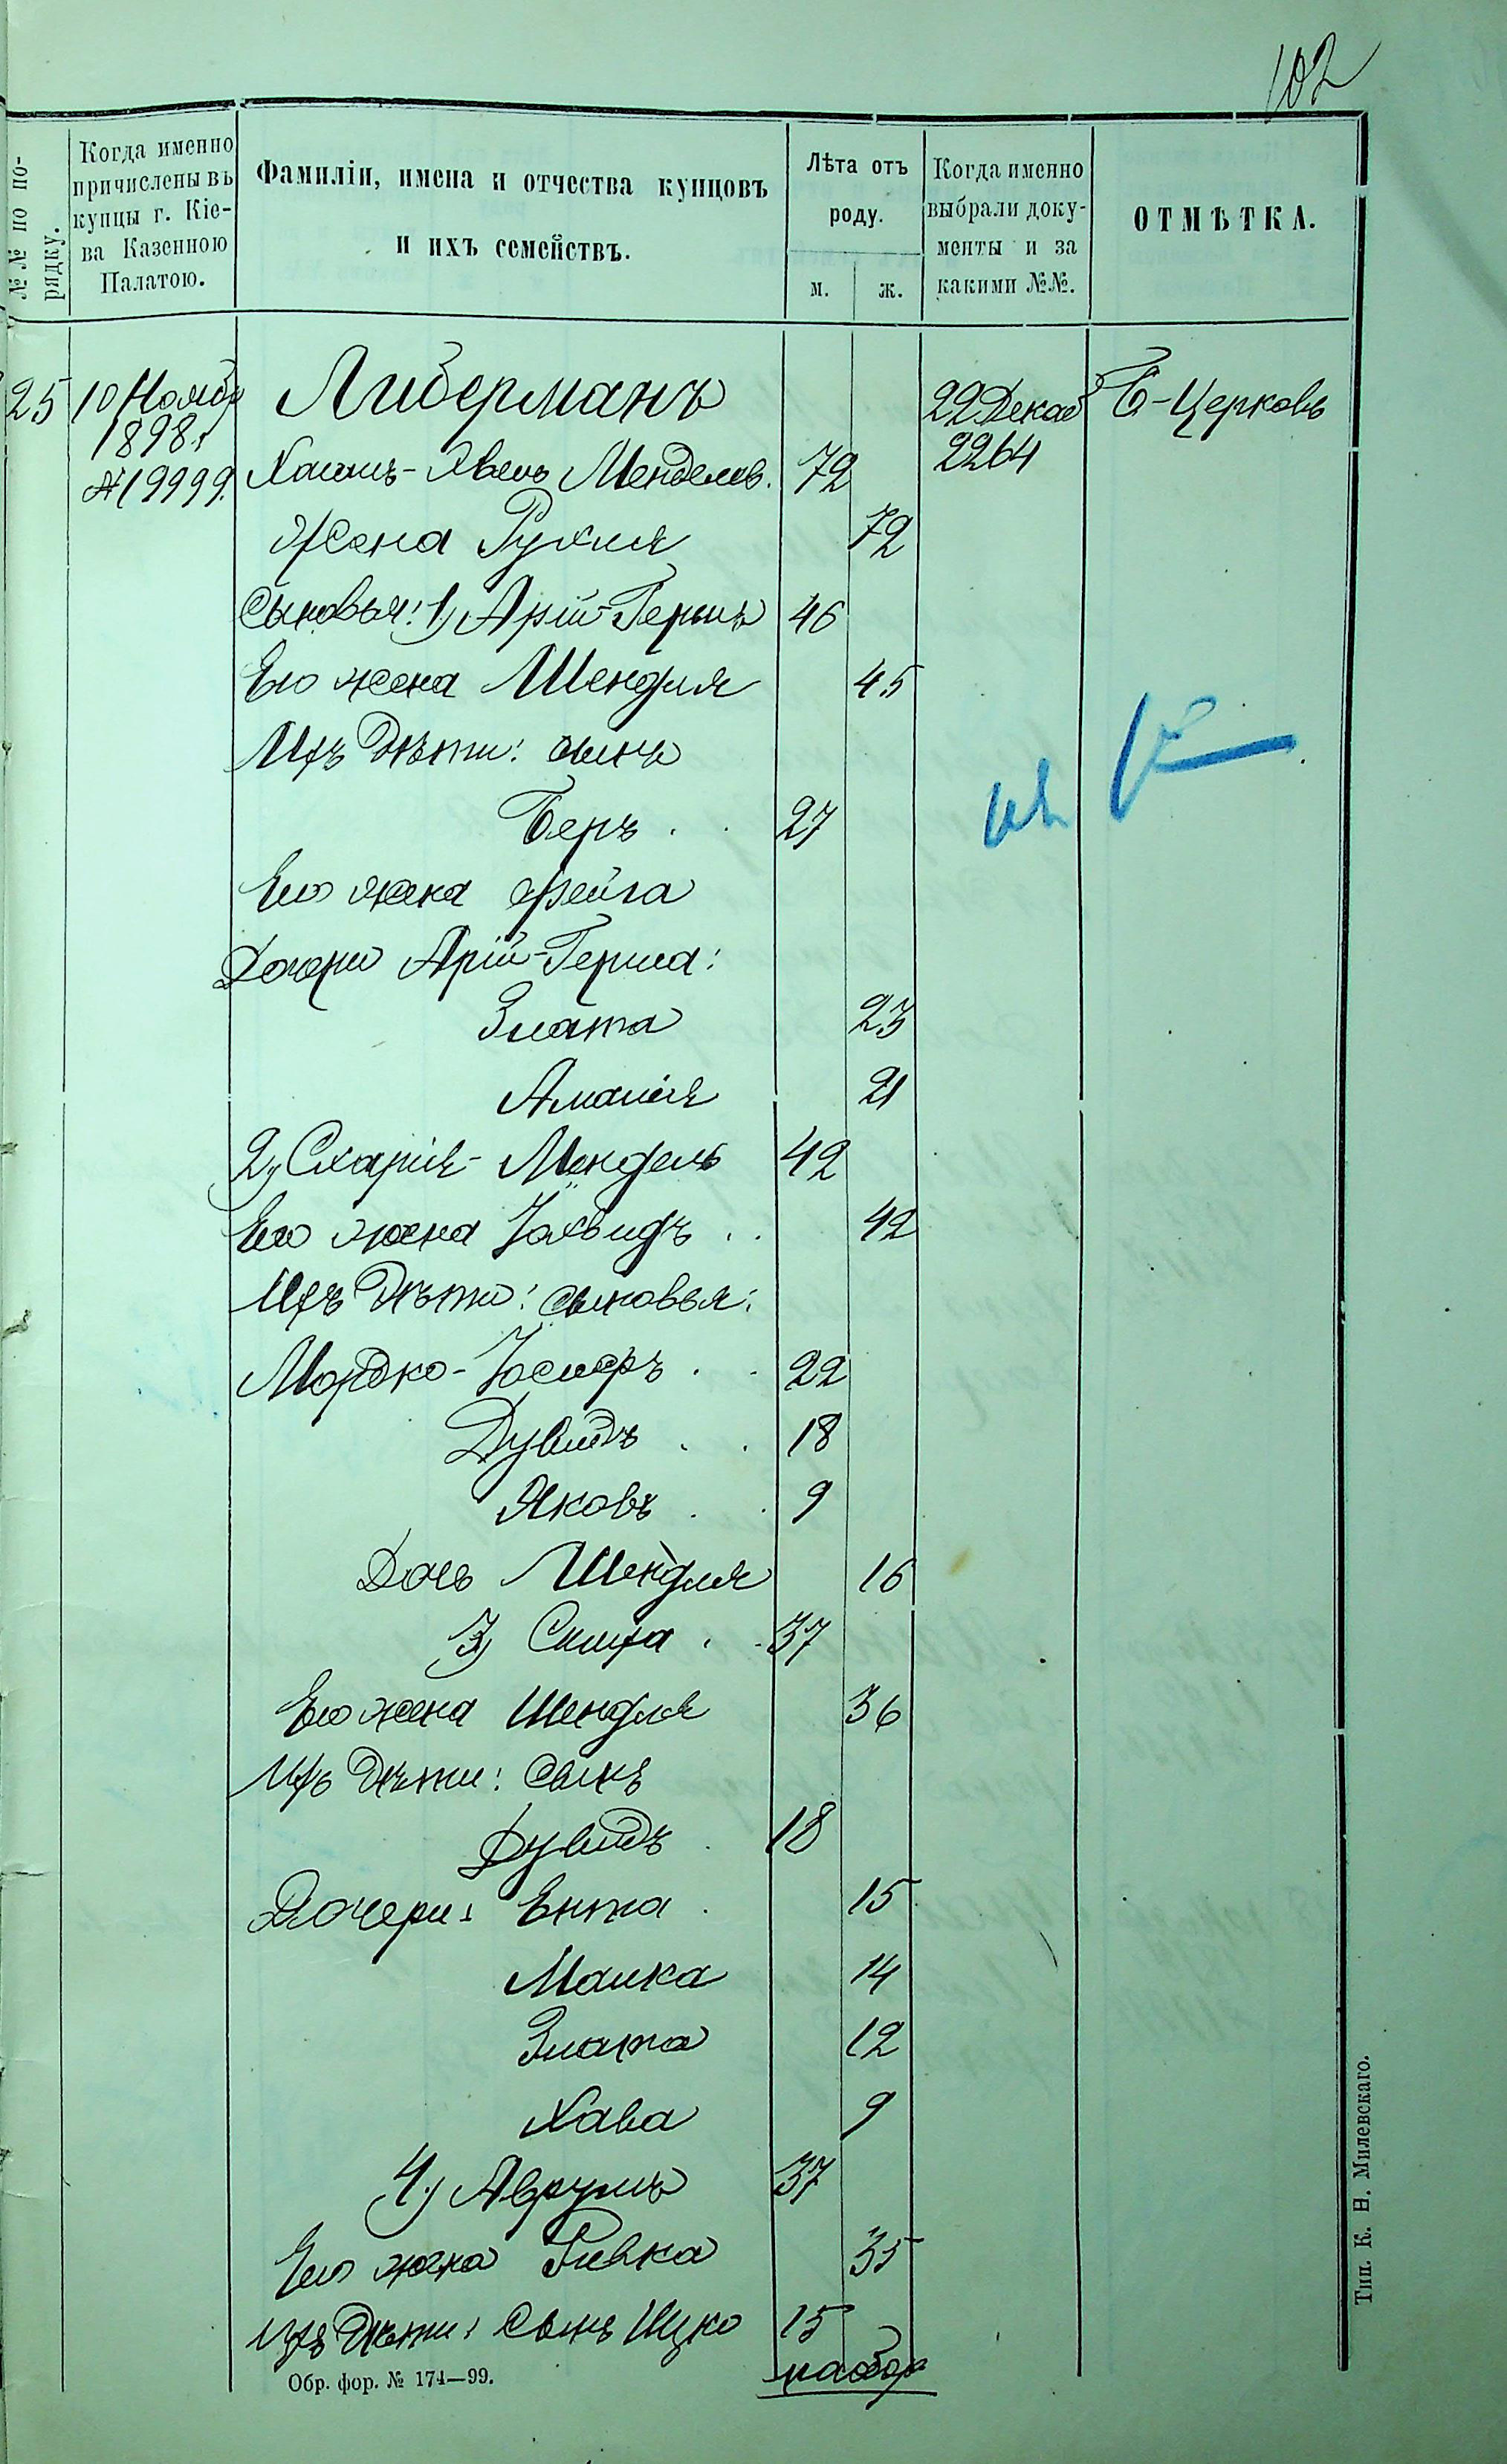 102
№№ по по-
рядку.
Когда именно
причислены въ
купцы г. Кіе-
ва Казенною
Палатою.
Фамиліи, имена и отчества купцовъ
и ихъ семействъ.
Лѣта отъ
роду.
м. ж.
Когда именно
выбрали доку-
менты и за
какими №№.
ОТМѢТКА.
25 10 Ноябр Либерманъ 22 Декаб Б-Церковь
1898 г 2264
№ 19999. Хаимъ- Менделев. 72
Жена Рухля 72
Сыновья: 1) Арій-Гершъ 46
Его жена Шендля 45
Ихъ дѣти: сынъ
Беръ . . 27
Его жена Фейга
Дочери Арій-Герша:
Злата 23
21
2) Схарія- Мендель 42
Его жена Іохведъ . . 42
Ихъ дѣти: сыновья:
Мордко-Іосифъ . . 22
Дувидъ . . 18
Яковъ . . 9
Дочь Шендля 16
3) . . 37
Его жена Шендля 36
Ихъ дѣти: Сынъ
Дувидъ . 18
Дочери: Ента . 15
Малка 14
Злата 12
Хава 9
4) Аврумъ 37
Его жена Ривка 35
Ихъ дѣти: Сынъ Ицко 15
на обор
Обр. фор. № 174—99.
Тип. К. Н. Милевскаго.